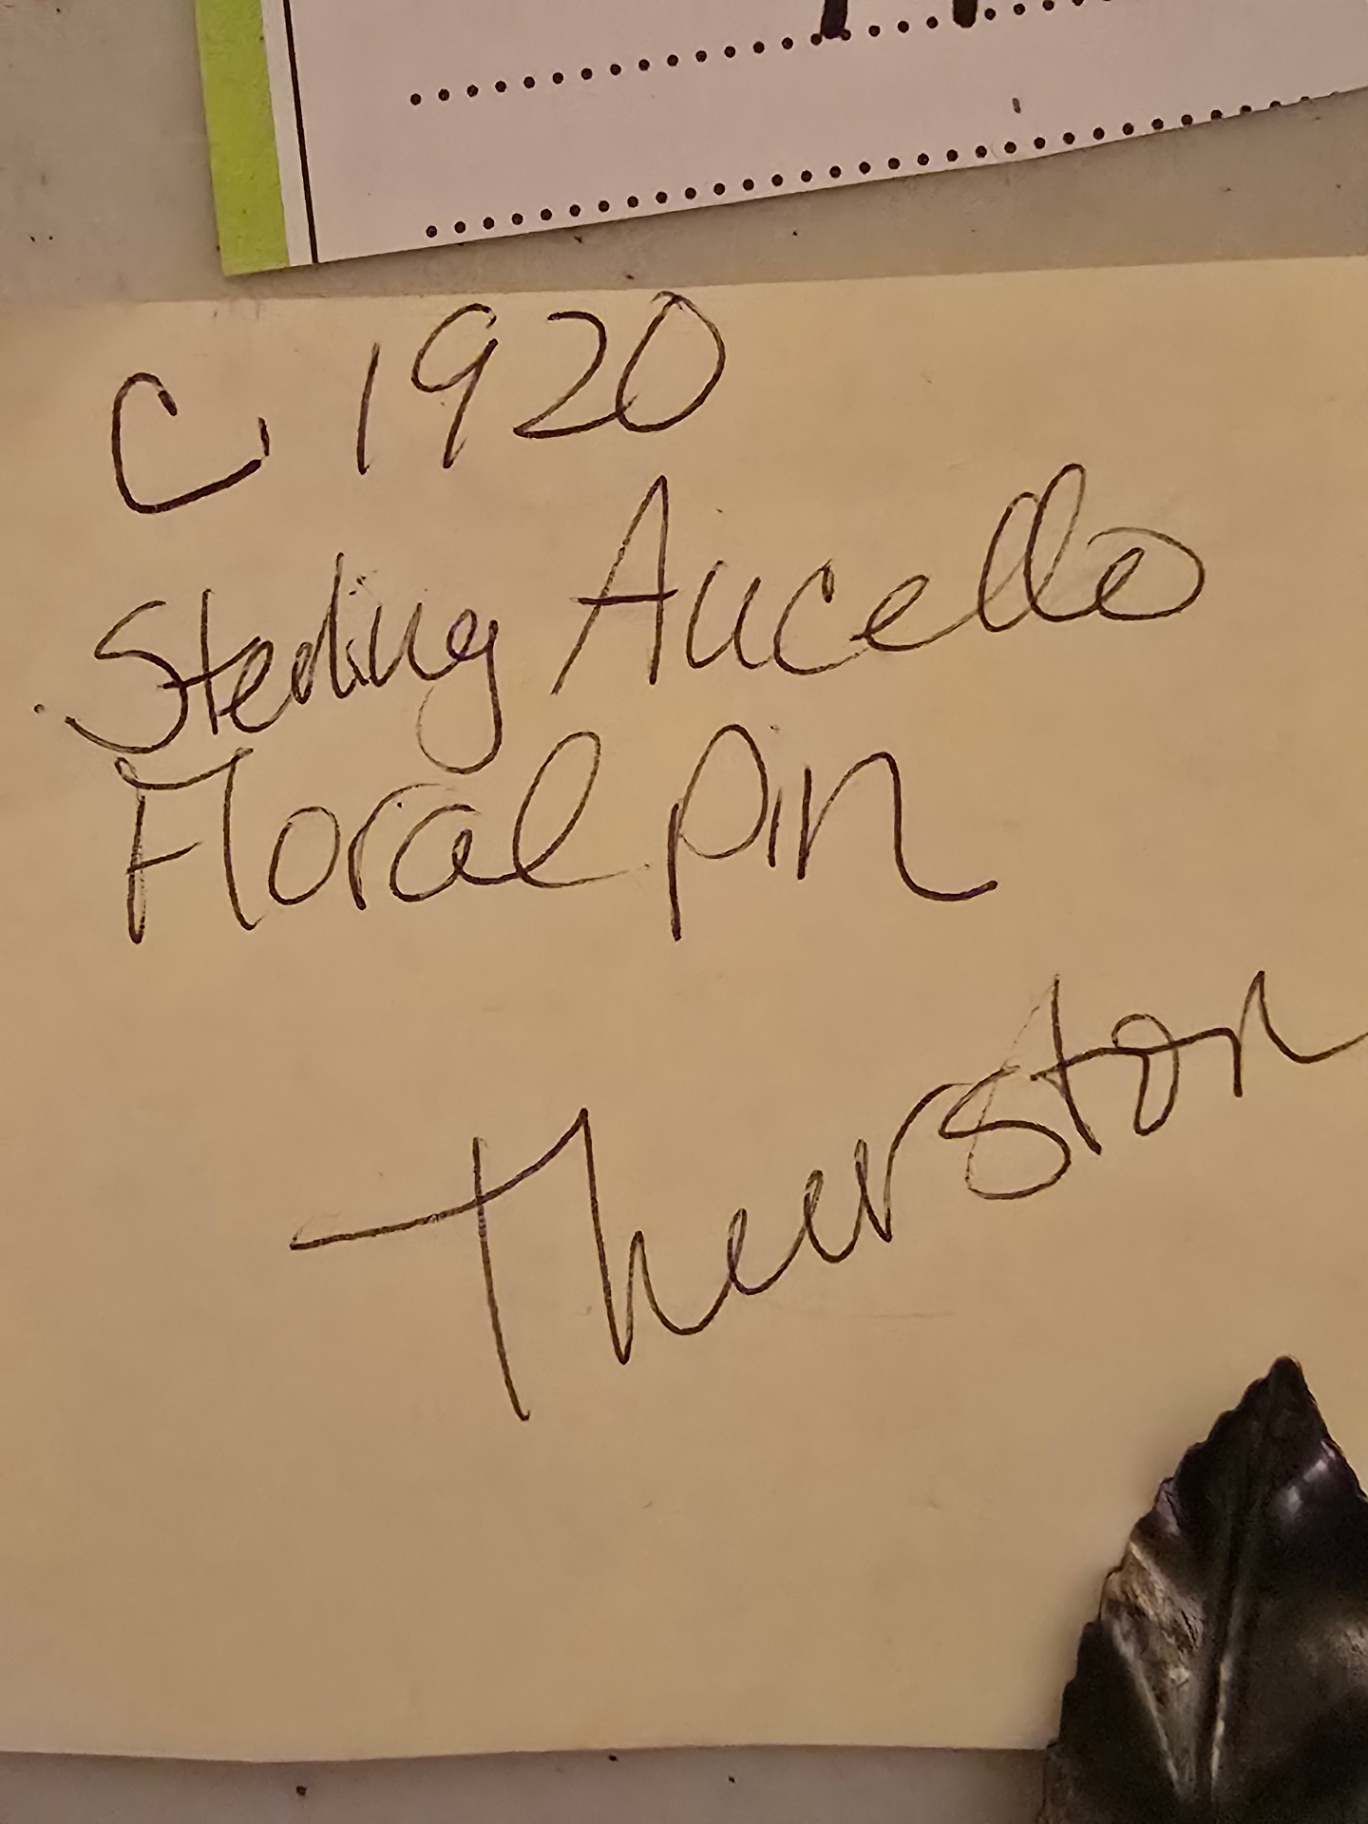 C. 1920
Sterling Aucello
Floral pin
Thurston